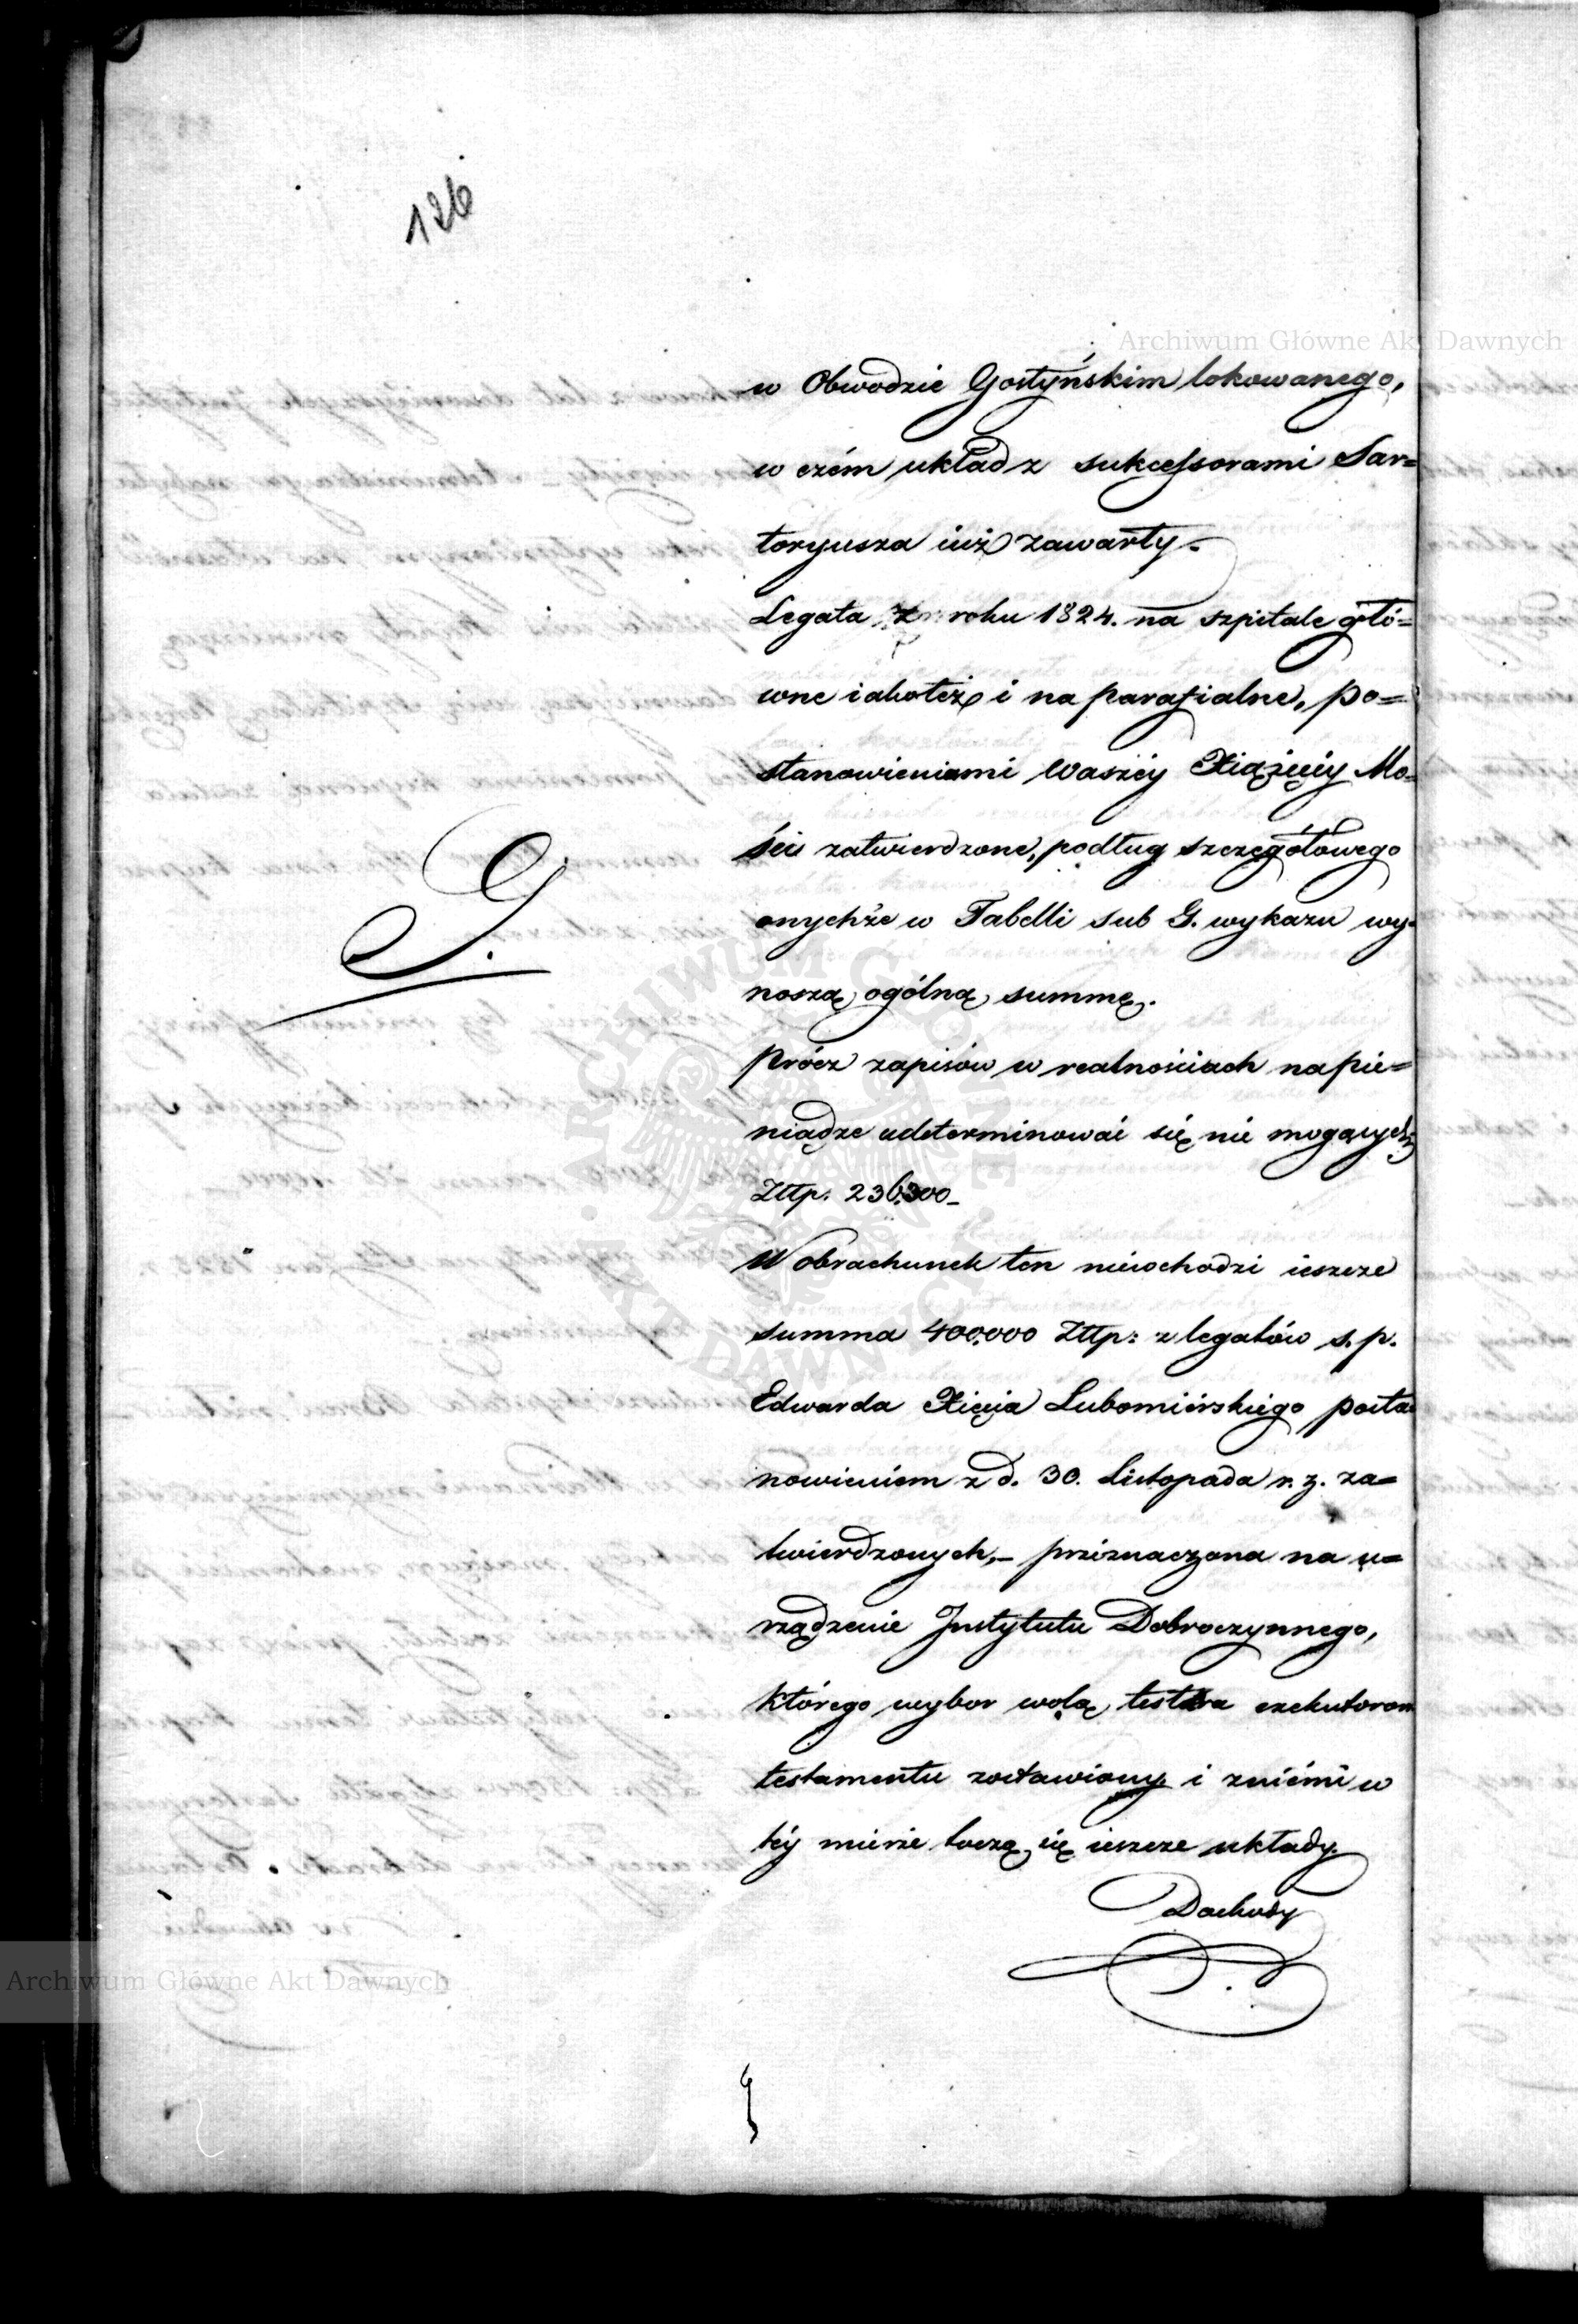 126
Archiwum Główne Akt Dawnych
w Obwodzie Gostyńskim lokowanego,
w czém układ z sukcessorami Sar=
toryusza iuż zawarty.
Legata z roku 1824. na szpitale głó=
wne iakoteż i na parafialne, po=
stanowieniami Waszéy Xiążęcéy Mo=
ści zatwierdzone, podług szczegółowego
G.
onychże w Tabelli sub G. wykazu wy=
noszą ogólną summę.
prócz zapisów w realnościach na pie=
niądze udeterminować się nie mogących
Złtp. 236,300_
W obrachunek ten niewchodzi ieszcze
summa 400,000 Złtp: z legatów s. p.
Edwarda Xięcia Lubomirskiego posta=
nowieniem z d. 30. Listopada r. z. za=
twierdzonych,_ przeznaczona na u=
rządzenie Instytutu Dobroczynnego,
którego wybor wolą testora exekutorom
testamentu zostawiony i zniémi w
téy mierze toczą się ieszcze układy.
Dochody
Archiwum Główne Akt Dawnych
ARCHIWUM GŁÓWNE AKT DAWNYCH